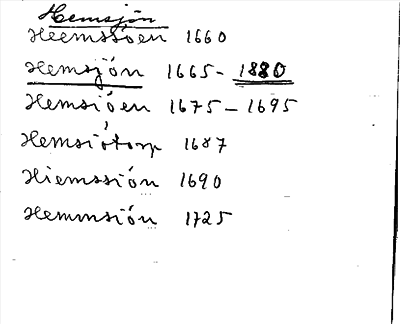 Hemsjön
Heemssöen 1660
Hemsjön 1665- 1880
Hemsiöen 1675-1695
Hemsiötorp 1687
Hiemssiön 1690
Hemmsiön 1725